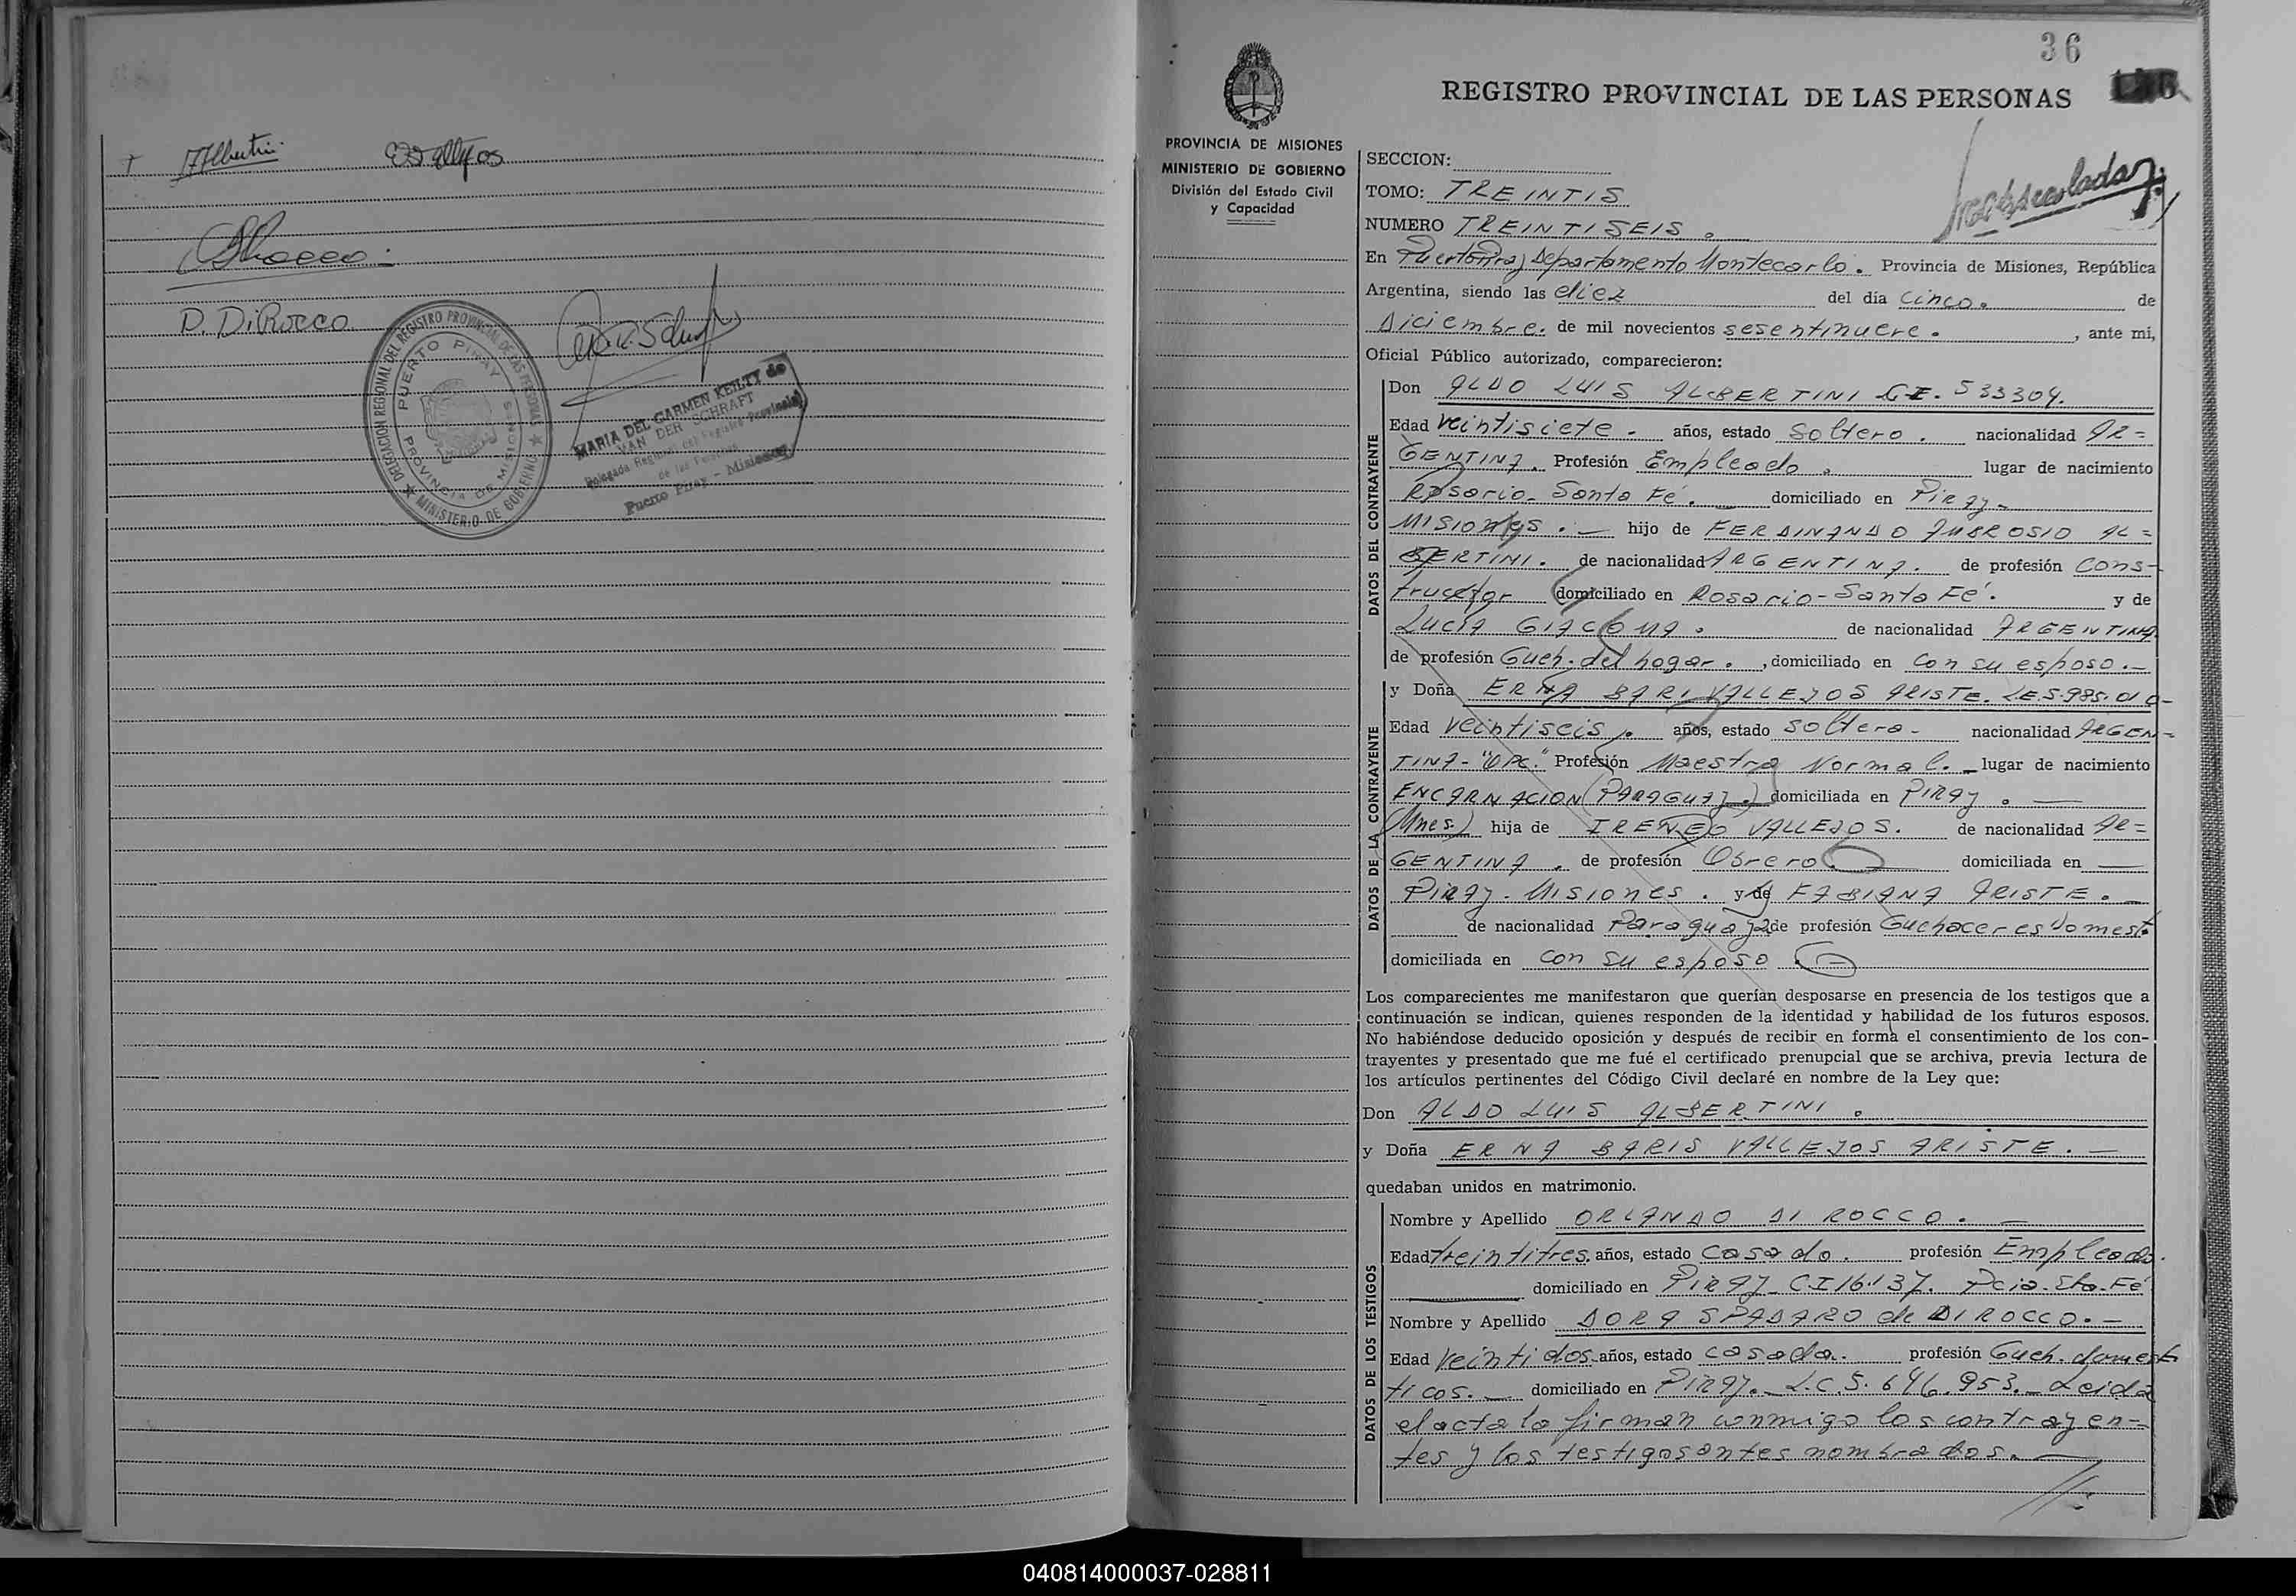 Albertini
EBVallejos
DiRocco
D. DiRocco
DELEGACION REGIONAL DEL REGISTRO PROVINCIAL DE LAS PERSONAS
PUERTO PIRAY
PROVINCIA DE MISIONES
★ MINISTERIO DE GOBIERNO ★
MARIA DEL CARMEN KEILTY de
VAN DER SCHRAFT
Delegada Regional del Registro Provincial
de las Personas
Puerto Piray - Misiones
36
REGISTRO PROVINCIAL DE LAS PERSONAS
PROVINCIA DE MISIONES
MINISTERIO DE GOBIERNO
División del Estado Civil
y Capacidad
SECCION:
TOMO: TREINTIS
NUMERO TREINTISEIS.
En Puerto Piray Departamento Montecarlo. Provincia de Misiones, República
Argentina, siendo las diez del día cinco. de
Diciembre. de mil novecientos sesentinueve. , ante mi,
Oficial Público autorizado, comparecieron:
DATOS DEL CONTRAYENTE
Don ALDO LUIS ALBERTINI C.I. 533304.
Edad veintisiete - años, estado Soltero. nacionalidad AR=
GENTINA. Profesión Empleado. lugar de nacimiento
Rosario - Santa Fé. domiciliado en PIRAY -
MISIONES. - hijo de FERDINANDO AMBROSIO AL=
BERTINI. de nacionalidad ARGENTINA. de profesión Cons-
tructor domiciliado en Rosario - Santa Fé. y de
LUCIA GIACOMA. de nacionalidad ARGENTINA
de profesión Queh. del hogar. , domiciliado en con su esposo. -
DATOS DE LA CONTRAYENTE
y Doña ERNA BARI VALLEJOS ARISTE. LE. 5.985.010-
Edad veintiseis. años, estado soltera - nacionalidad ARGEN=
TINA - "OPC." Profesión Maestra Normal. - lugar de nacimiento
ENCARNACION (PARAGUAY.) domiciliada en PIRAY. -
(Mnes.) hija de IRENEO VALLEJOS. de nacionalidad AR=
GENTINA. de profesión Obrero. domiciliada en
PIRAY - MISIONES. y de FABIANA ARISTE. -
de nacionalidad Paraguaya de profesión Quehaceres Domest.
domiciliada en con su esposo. -
Los comparecientes me manifestaron que querían desposarse en presencia de los testigos que a
continuación se indican, quienes responden de la identidad y habilidad de los futuros esposos.
No habiéndose deducido oposición y después de recibir en forma el consentimiento de los con-
trayentes y presentado que me fué el certificado prenupcial que se archiva, previa lectura de
los artículos pertinentes del Código Civil declaré en nombre de la Ley que:
Don ALDO LUIS ALBERTINI.
y Doña ERNA BARIS VALLEJOS ARISTE. -
quedaban unidos en matrimonio.
DATOS DE LOS TESTIGOS
Nombre y Apellido ORLANDO DI ROCCO. -
Edad treintitres. años, estado casado. profesión Empleado.
domiciliado en PIRAY - C.I 16.137. Pcia. Sta. Fé
Nombre y Apellido DORA SPADARO de DI ROCCO. -
Edad veintidos - años, estado casada. profesión Queh. domest
ticos. - domiciliado en PIRAY. - L.C. 5.646.953. - Leida
el acta la firman conmigo los contrayen=
tes y los testigos antes nombrados. -
040814000037-028811